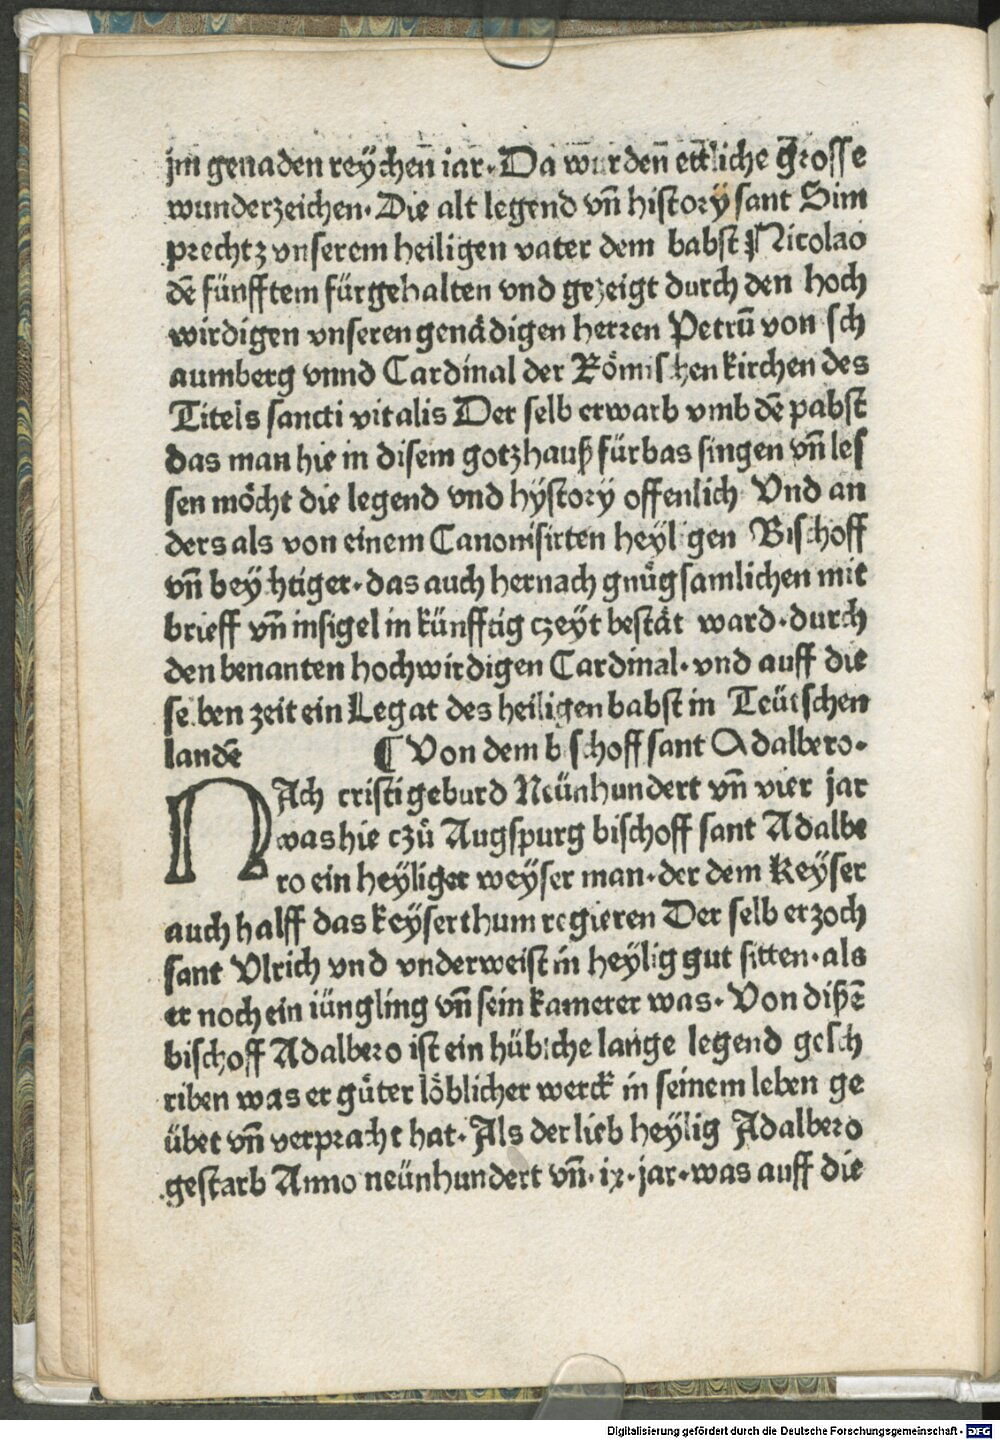 jm genaden reÿchen iar. Da wurden ettliche grosse
wunderzeichen. Die alt legend vn̄ history sant Sim
prechtz vnserem heiligen vater dem babst Nicolao
dē fünfftem fürgehalten vnd gezeigt durch den hoch
wirdigen vnseren genådigen herren Petrū von sch
aumberg vnnd Cardinal der Römischen kirchen des
Titels sancti vitalis Der selb erwarb vmb dē pabst
das man hie in disem gotzhauß fürbas singen vn̄ les
sen möcht die legend vnd hÿstory offenlich Vnd an
ders als von einem Canonisirten heÿligen Bischoff
vn̄ beÿchtiger. das auch hernach gnůgsamlichen mit
brieff vn̄ insigel in künfftig czeÿt bestät ward. durch
den benanten hochwirdigen Cardinal. vnd auff die
selben zeit ein Legat des heiligen babst in Teütschen
landē ¶ Von dem bischoff sant Adalbero.
NAch cristi geburd Neünhundert vn̄ vier jar
was hie czů Augspurg bischoff sant Adalbe
ro ein heÿliger weÿser man. der dem Keÿser
auch halff das keÿserthum regieren Der selb erzoch
sant Vlrich vnd vnderweist in heÿlig gut sitten. als
er noch ein iüngling vn̄ sein kamerer was. Von dißē
bischoff Adalbero ist ein hübsche lange legend gesch
riben was er gůter löblicher werck in seinem leben ge
übet vn̄ verpracht hat. Als der lieb heÿlig Adalbero
gestarb Anno neünhundert vn̄. ix. jar. was auff die
Digitalisierung gefördert durch die Deutsche Forschungsgemeinschaft - DFG